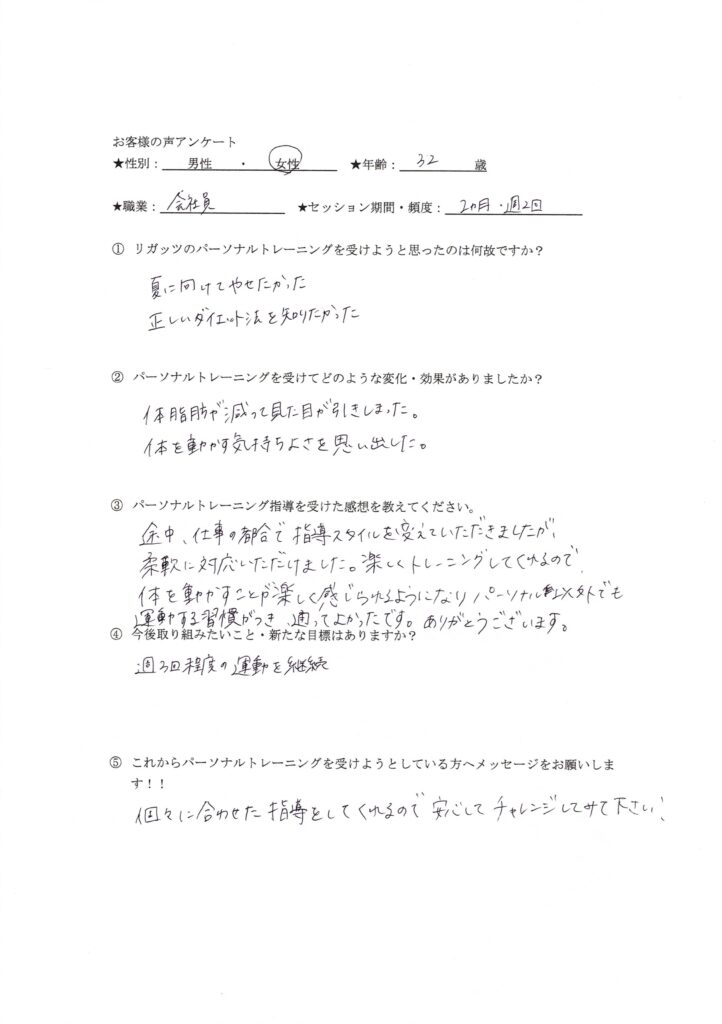 お客様の声アンケート
★性別：　男性　・　女性　★年齢：32歳
★職業：会社員　★セッション期間・頻度：2ヵ月・週2回
① リガッツのパーソナルトレーニングを受けようと思ったのは何故ですか？
夏に向けてやせたかった
正しいダイエット法を知りたかった
② パーソナルトレーニングを受けてどのような変化・効果がありましたか？
体脂肪が減って見た目が引きしまった。
体を動かす気持ちよさを思い出した。
③ パーソナルトレーニング指導を受けた感想を教えてください。
途中、仕事の都合で指導スタイルを変えていただきましたが、
柔軟に対応いただけました。楽しくトレーニングしてくれるので
体を動かすことが楽しく感じられるようになり パーソナル以外でも
運動する習慣がつき 通ってよかったです。ありがとうございます。
④ 今後取り組みたいこと・新たな目標はありますか？
週3回程度の運動を継続
⑤ これからパーソナルトレーニングを受けようとしている方へメッセージをお願いしま
す！！
個々に合わせた指導をしてくれるので安心してチャレンジしてみて下さい！